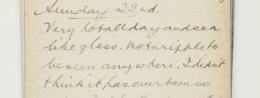 Sunday 22nd.
Very hot all day and sea
like glass. not a ripple to
be seen anywhere. I didn't
think it has ever been so